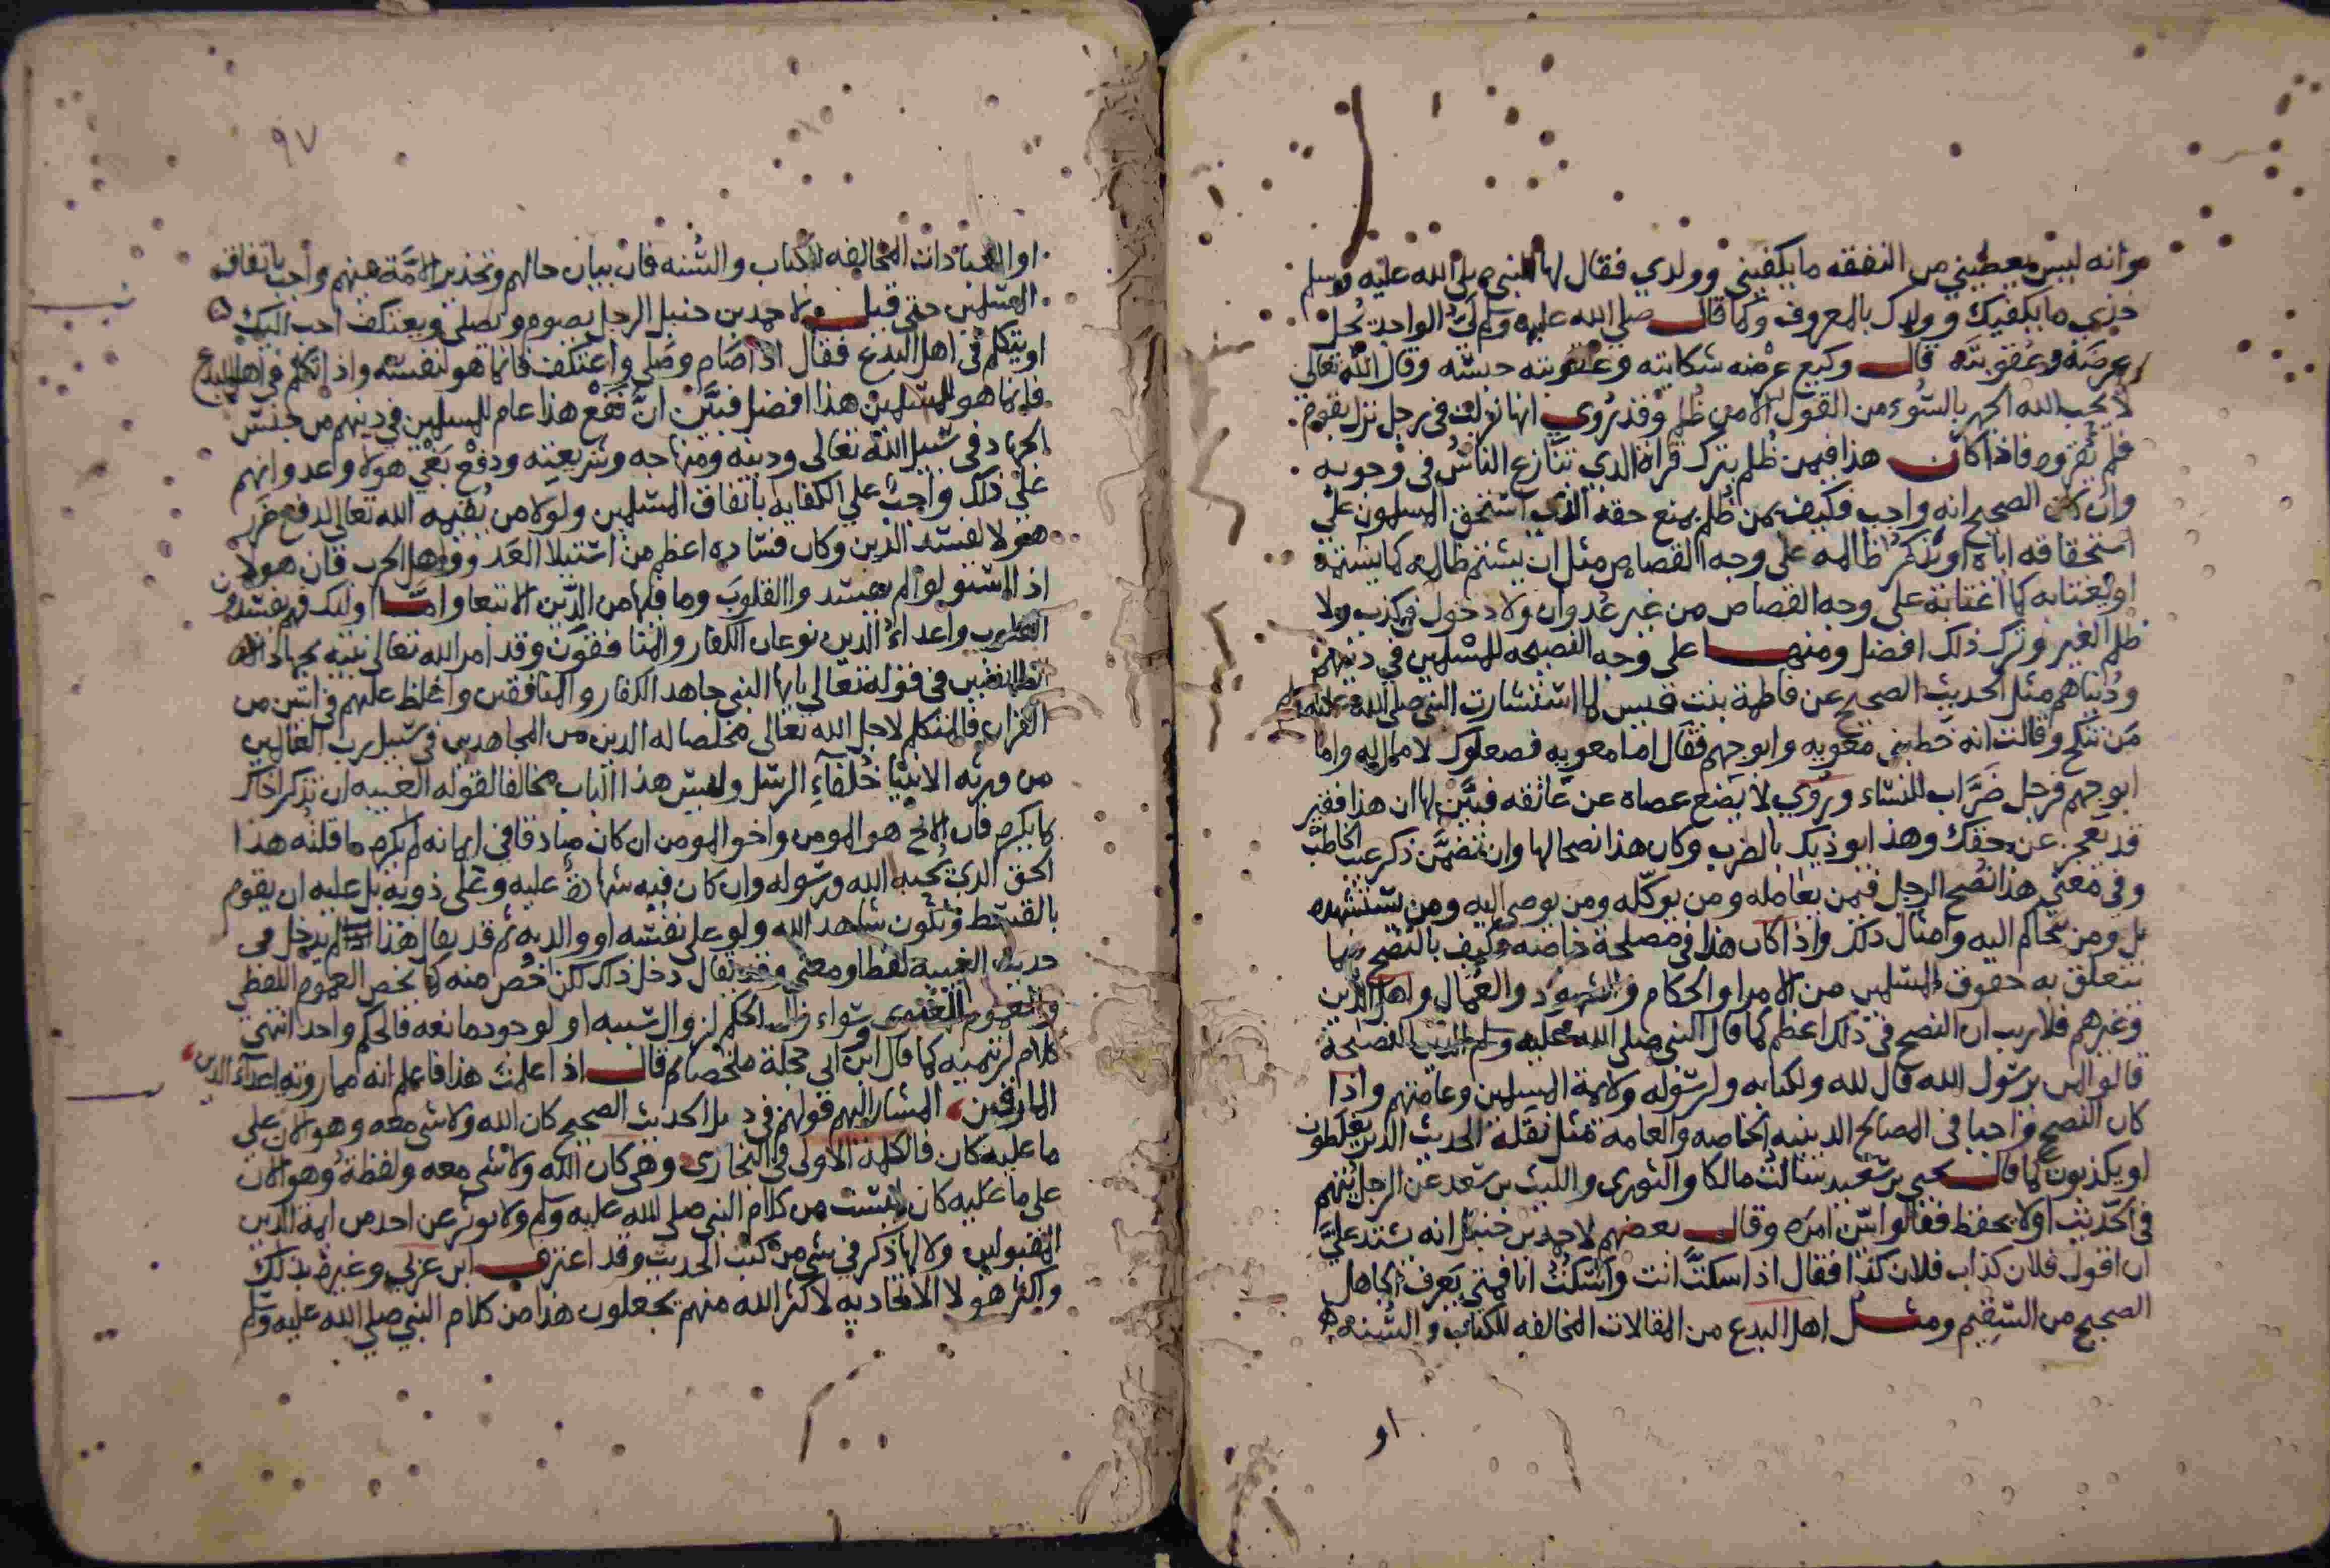 وانه ليس يعطيني من النفقه ما يكفيني وولدي فقال لها النبي صلى الله عليه وسلم
خذي ما يكفيك وولدك بالمعروف وكما قال صلى الله عليه وسلم لي الواجد يحل
عرضه وعقوبته قال وكيع عرضه شكايته وعقوبته حبسه وقال الله تعالى
لا يحب الله الجهر بالسوء من القول الا من ظلم وقد روي انها نزلت في رجل نزل بقوم
فلم يقروه فاذا كان هذا فيمن ظلم بترك قراه الذي تنازع الناس في وجوبه
وان كان الصحيح انه واجب فكيف بمن ظلم بمنع حقه الذي استحق المسلمون على
استحقاقه اياه او يذكر ظالمه على وجه القصاص مثل ان يشتم ظالمه كما يشتمه
او يغتابه كما اغتابه على وجه القصاص من غير عدوان ولا دخول في كذب ولا
ظلم الغير وترك ذلك افضل ومنها على وجه النصيحه للمسلمين في دينهم
ودنياهم مثل الحديث الصحيح عن فاطمة بنت قيس لما استشارت النبي صلى الله عليه وسلم
من تنكح وقالت انه خطبني معويه وابو جهم فقال اما معويه فصعلوك لا مال له واما
ابو جهم فرجل ضراب للنساء وروي لا يضع عصاه عن عاتقه فبين لها ان هذا فقير
قد يعجز عن حقك وهذا يوذيك بالضرب وكان هذا نصحا لها وان تضمن ذكر عيب الخاطب
وفي معني هذا نصح الرجل فيمن يعامله ومن يوكله ومن يوصي اليه ومن يستشهده
بل ومن يتحاكم اليه وامثال ذلك واذا كان هذا في مصلحة خاصه فكيف بالنصح فيما
يتعلق به حقوق المسلمين من الامرا والحكام والشهود والعمال واهل الدين
وغيرهم فلا ريب ان النصح في ذلك اعظم كما قال النبي صلى الله عليه وسلم الدين النصيحة
قالوا لمن يرسول الله قال لله ولكتابه ولرسوله ولايمة المسلمين وعامتهم واذا
كان النصح واجبا في المصالح الدينيه الخاصه والعامه مثل نقلة الحديث الذين يغلطون
او يكذبون كما قال يحيي بن سعيد سالت مالكا والثوري والليث بن سعد عن الرجل يتهم
في الحديث او لا يحفظ فقالوا بين امره وقال بعضهم لاحمد بن حنبل انه يشتد علي
ان اقول فلان كذاب فلان كذا فقال اذا سكتَّ انت وسكتُّ انا فمتي يعرف الجاهل
الصحيح من السقيم ومثل اهل البدع من المقالات المخالفه للكتاب والسنه
او
٩٧
او العبادات المخالفه للكتاب والسنه فان بيان حالهم وتحذير الامة منهم واجب باتفاق
المسلمين حتى قيل لاحمد بن حنبل الرجل يصوم ويصلي ويعتكف احب اليك
او يتكلم في اهل البدع فقال اذا صام وصلي واعتكف فانما هو لنفسه واذا تكلم في اهل البدع
فانما هو للمسلمين هذا افضل فبين ان نفع هذا عام للمسلمين في دينهم من جنس
الجهاد في سبيل الله تعالى ودينه ومنهاجه وشريعته ودفع بغي هولا وعدوانهم
على ذلك واجب علي الكفايه باتفاق المسلمين ولولا من يقيمه الله تعالى لدفع ضرر
هولا لفسد الدين وكان فساده اعظم من استيلا العدو من اهل الحرب فان هولا
اذا استولوا لم يفسدوا القلوب وما فيها من الدين الا تبعا واما اوليك فهم يفسدون
القلوب واعداء الدين نوعان الكفار والمنافقون وقد امر الله تعالى نبيه بجهاد
الطايفتين في قوله تعالى يايها النبي جاهد الكفار والمنافقين واغلظ عليهم في ايتين من
القران فالمتكلم لاجل الله تعالى مخلصا له الدين من المجاهدين في سبيل رب العالمين
من ورثه الانبيا خلفاء الرسل وليس هذا الباب مخالفا لقوله الغيبه ان تذكر اخاك
بما يكره فان الاخ هو المومن واخو المومن ان كان صادقا في ايمانه لم يكره ما قلته هذا
الحق الذي يحبه الله ورسوله وان كان فيه شهادة عليه وعلى ذويه بل عليه ان يقوم
بالقسط ويكون شاهد الله ولو على نفسه او والديه ثم قد يقال هذا لم يدخل في
حديث الغيبه لفظا ومعني وقد يقال دخل ذلك لكن خص منه كما يخص العموم اللفظي
والعموم المعنوي وسواء زال الحكم لزوال سببه او لوجود مانعه فالحكم واحد انتهى
كلام ابن تيميه كما قال ابن ابي حجلة ملخصا ثم قال اذا علمت هذا فاعلم انه مما روته اعداء الدين
المارقين المشار اليهم قولهم في ديل الحديث الصحيح كان الله ولا شي معه وهو الان على
ما عليه كان فالكلمة الاولى في البخاري وهي كان الله ولا شي معه ولفظة وهو الان
على ما عليه كان ليست من كلام النبي صلى الله عليه وسلم ولا توثر عن احد من ايمة الدين
المقبولين ولا لها ذكر في شي من كتب الحديث وقد اعترف ابن عربي وغيره بذلك
واكثر هولا الاتحاديه لا كثر الله منهم يجعلون هذا من كلام النبي صلى الله عليه وسلم